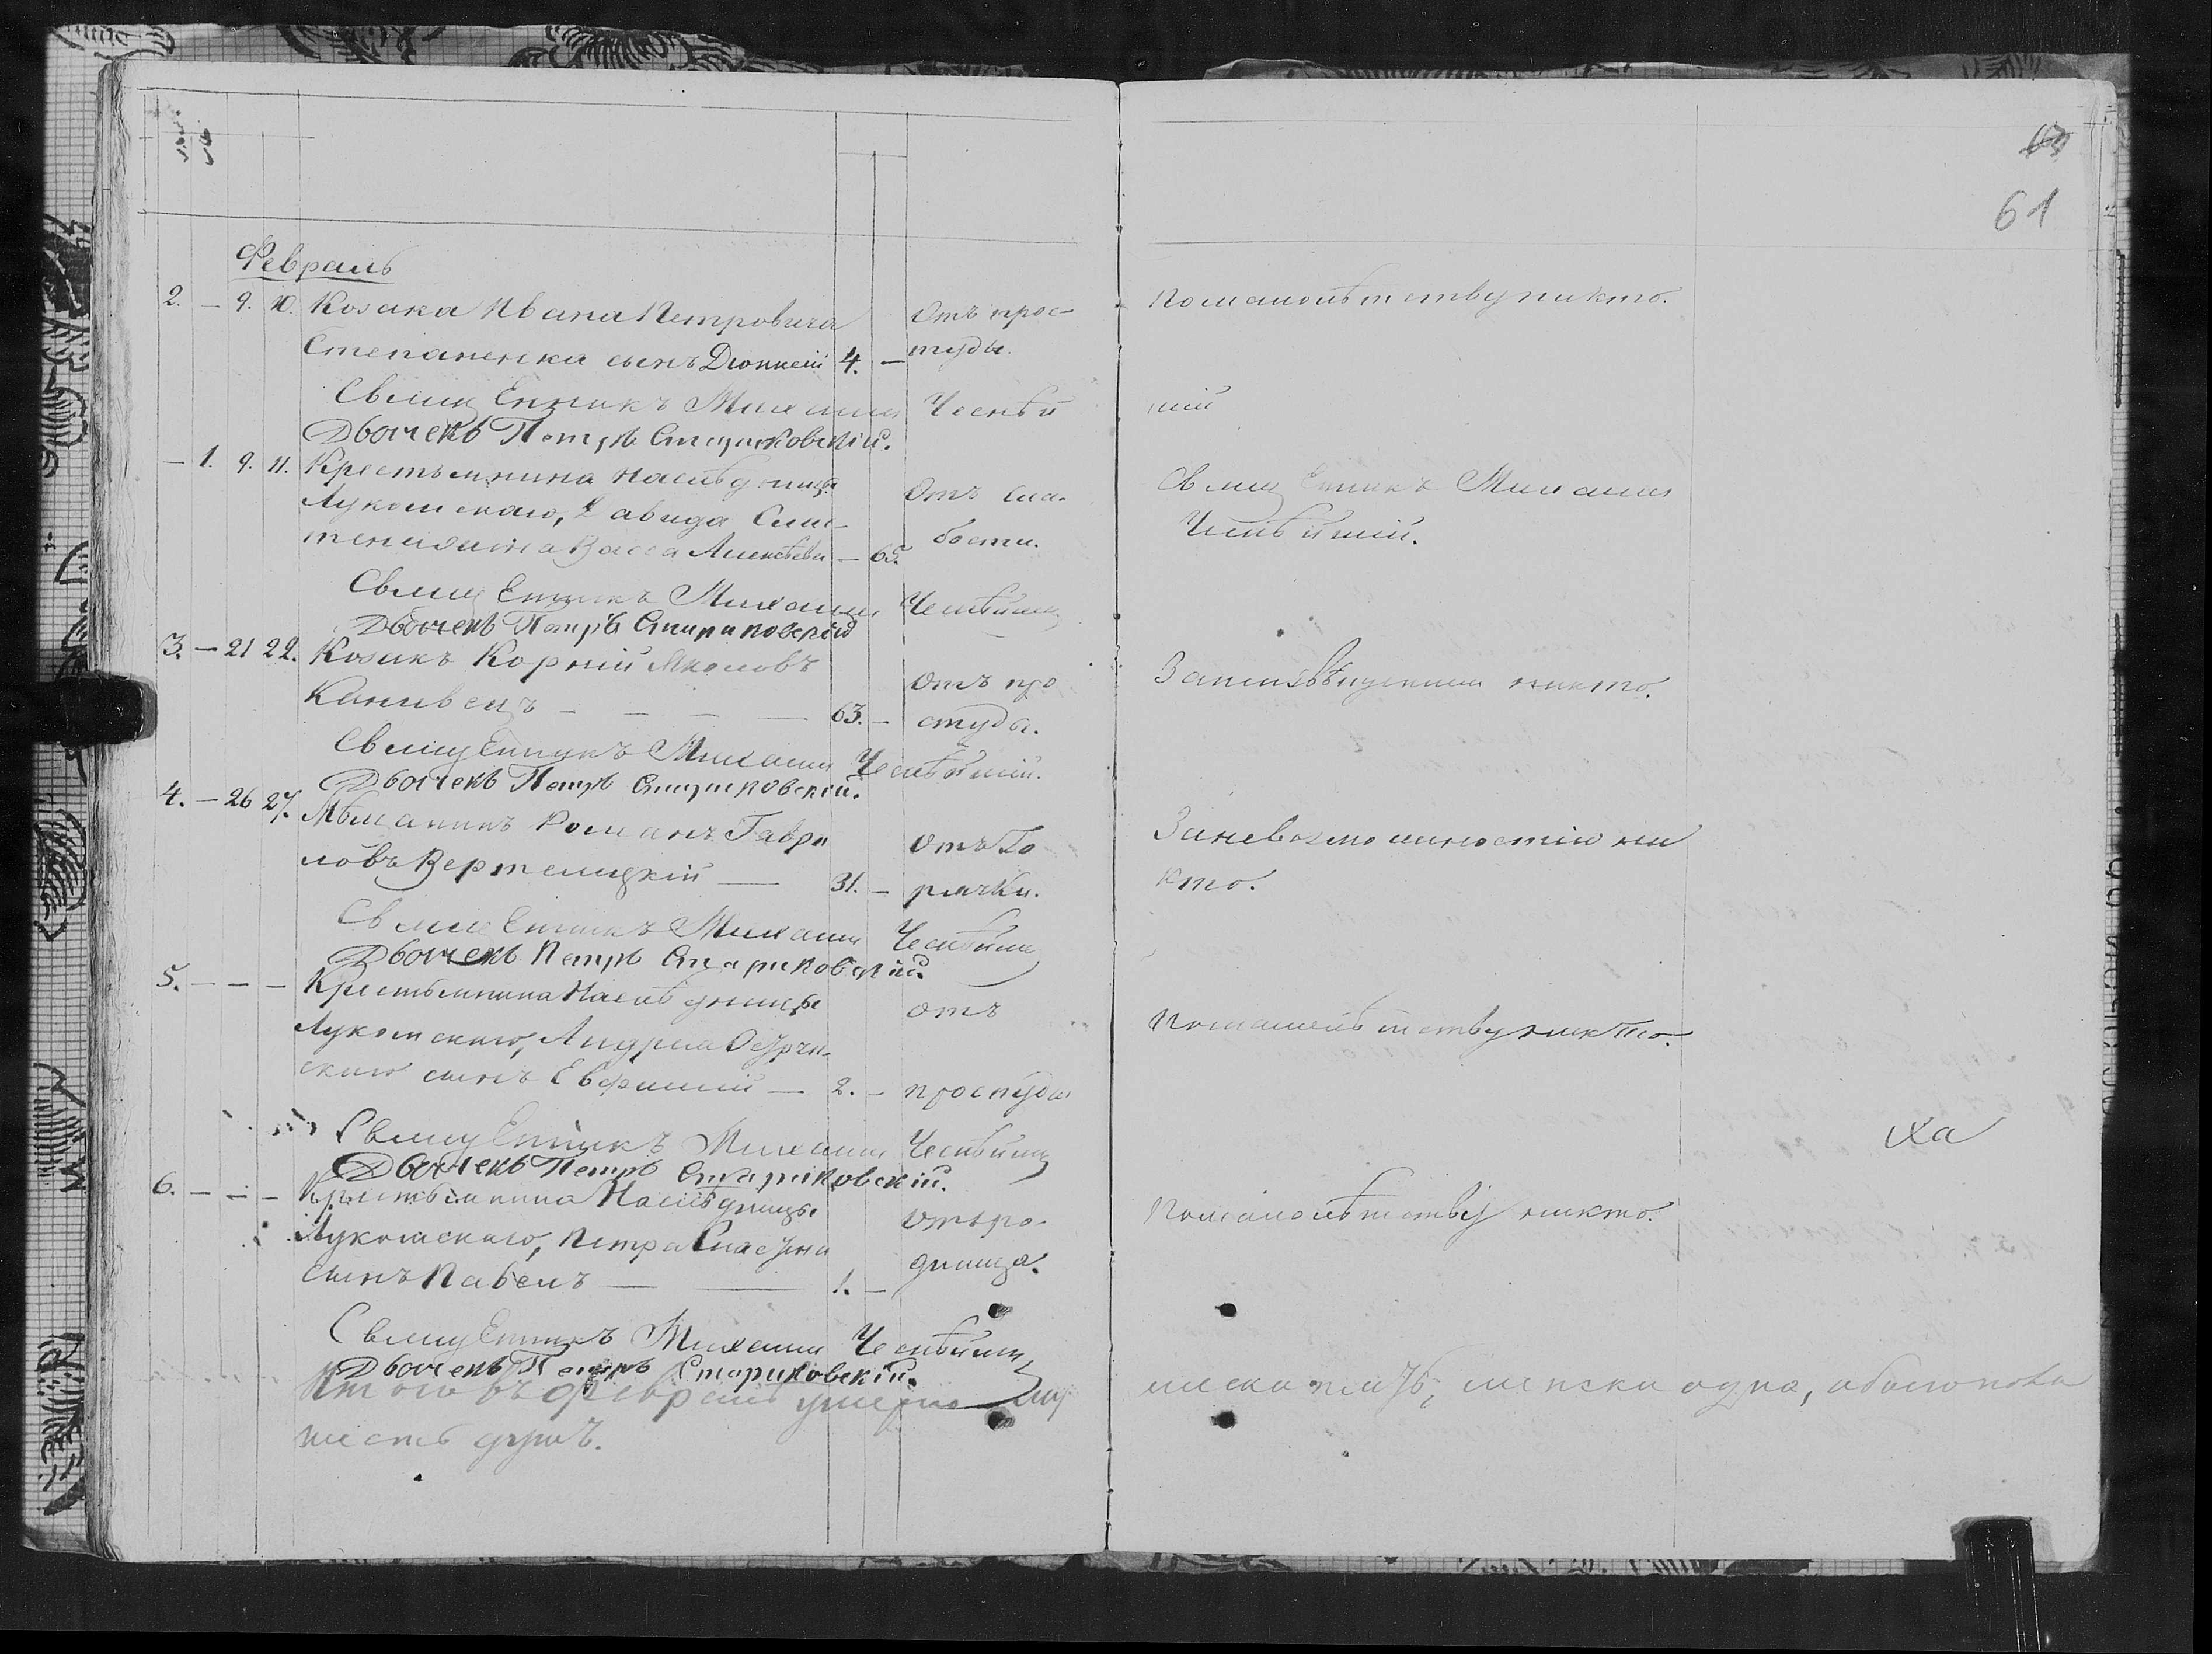 61
Февраль
2. – 9. 10. Козака Ивана Петровича
Степаненка сынъ Дионисій 4. –
Отъ прос-
туды.
по малолѣтству никто.
Священникъ Михаилъ
Дьячекъ Петръ Стариковскій.
– 1. 9. 11. Крестьянина наслѣдницы
Лукомскаго, Давида
жена Васса Алексѣева – 65.
Отъ сла-
бости.
Священникъ Михаилъ
Священникъ Михаилъ
Дьячекъ Петръ Стариковскій
3. – 21 22. Козакъ Корній Яковлевъ
Канивецъ – – – – 63. –
отъ про
студы.
никто.
Священникъ Михаилъ
Дьячекъ Петръ Стариковскій.
4. – 26 27. Мѣщанинъ Романъ Гаври
ловъ Вертелицкій — 31. –
отъ Го
рячки.
За невозможностію ни
кто.
Священникъ Михаилъ
Дьячекъ Петръ Стариковскій.
5. – – – Крестьянина Наслѣдницы
Лукомскаго, Андрея
скаго сынъ Евфимій — 2. –
отъ
простуды
по малолѣтству никто.
Священникъ Михаилъ
Дьячекъ Петръ Стариковскій.
ха
6. – – – Крестьянина Наслѣдницы
Лукомскаго, Петра
сынъ Павелъ — — 1. –
отъ ро-
димца.
по малолѣтству никто.
Священникъ Михаилъ
Дьячекъ Петръ Стариковскій.
Итого въ Февралѣ умерло муж
ска пять, женска одна, обоего пола
шесть душъ.